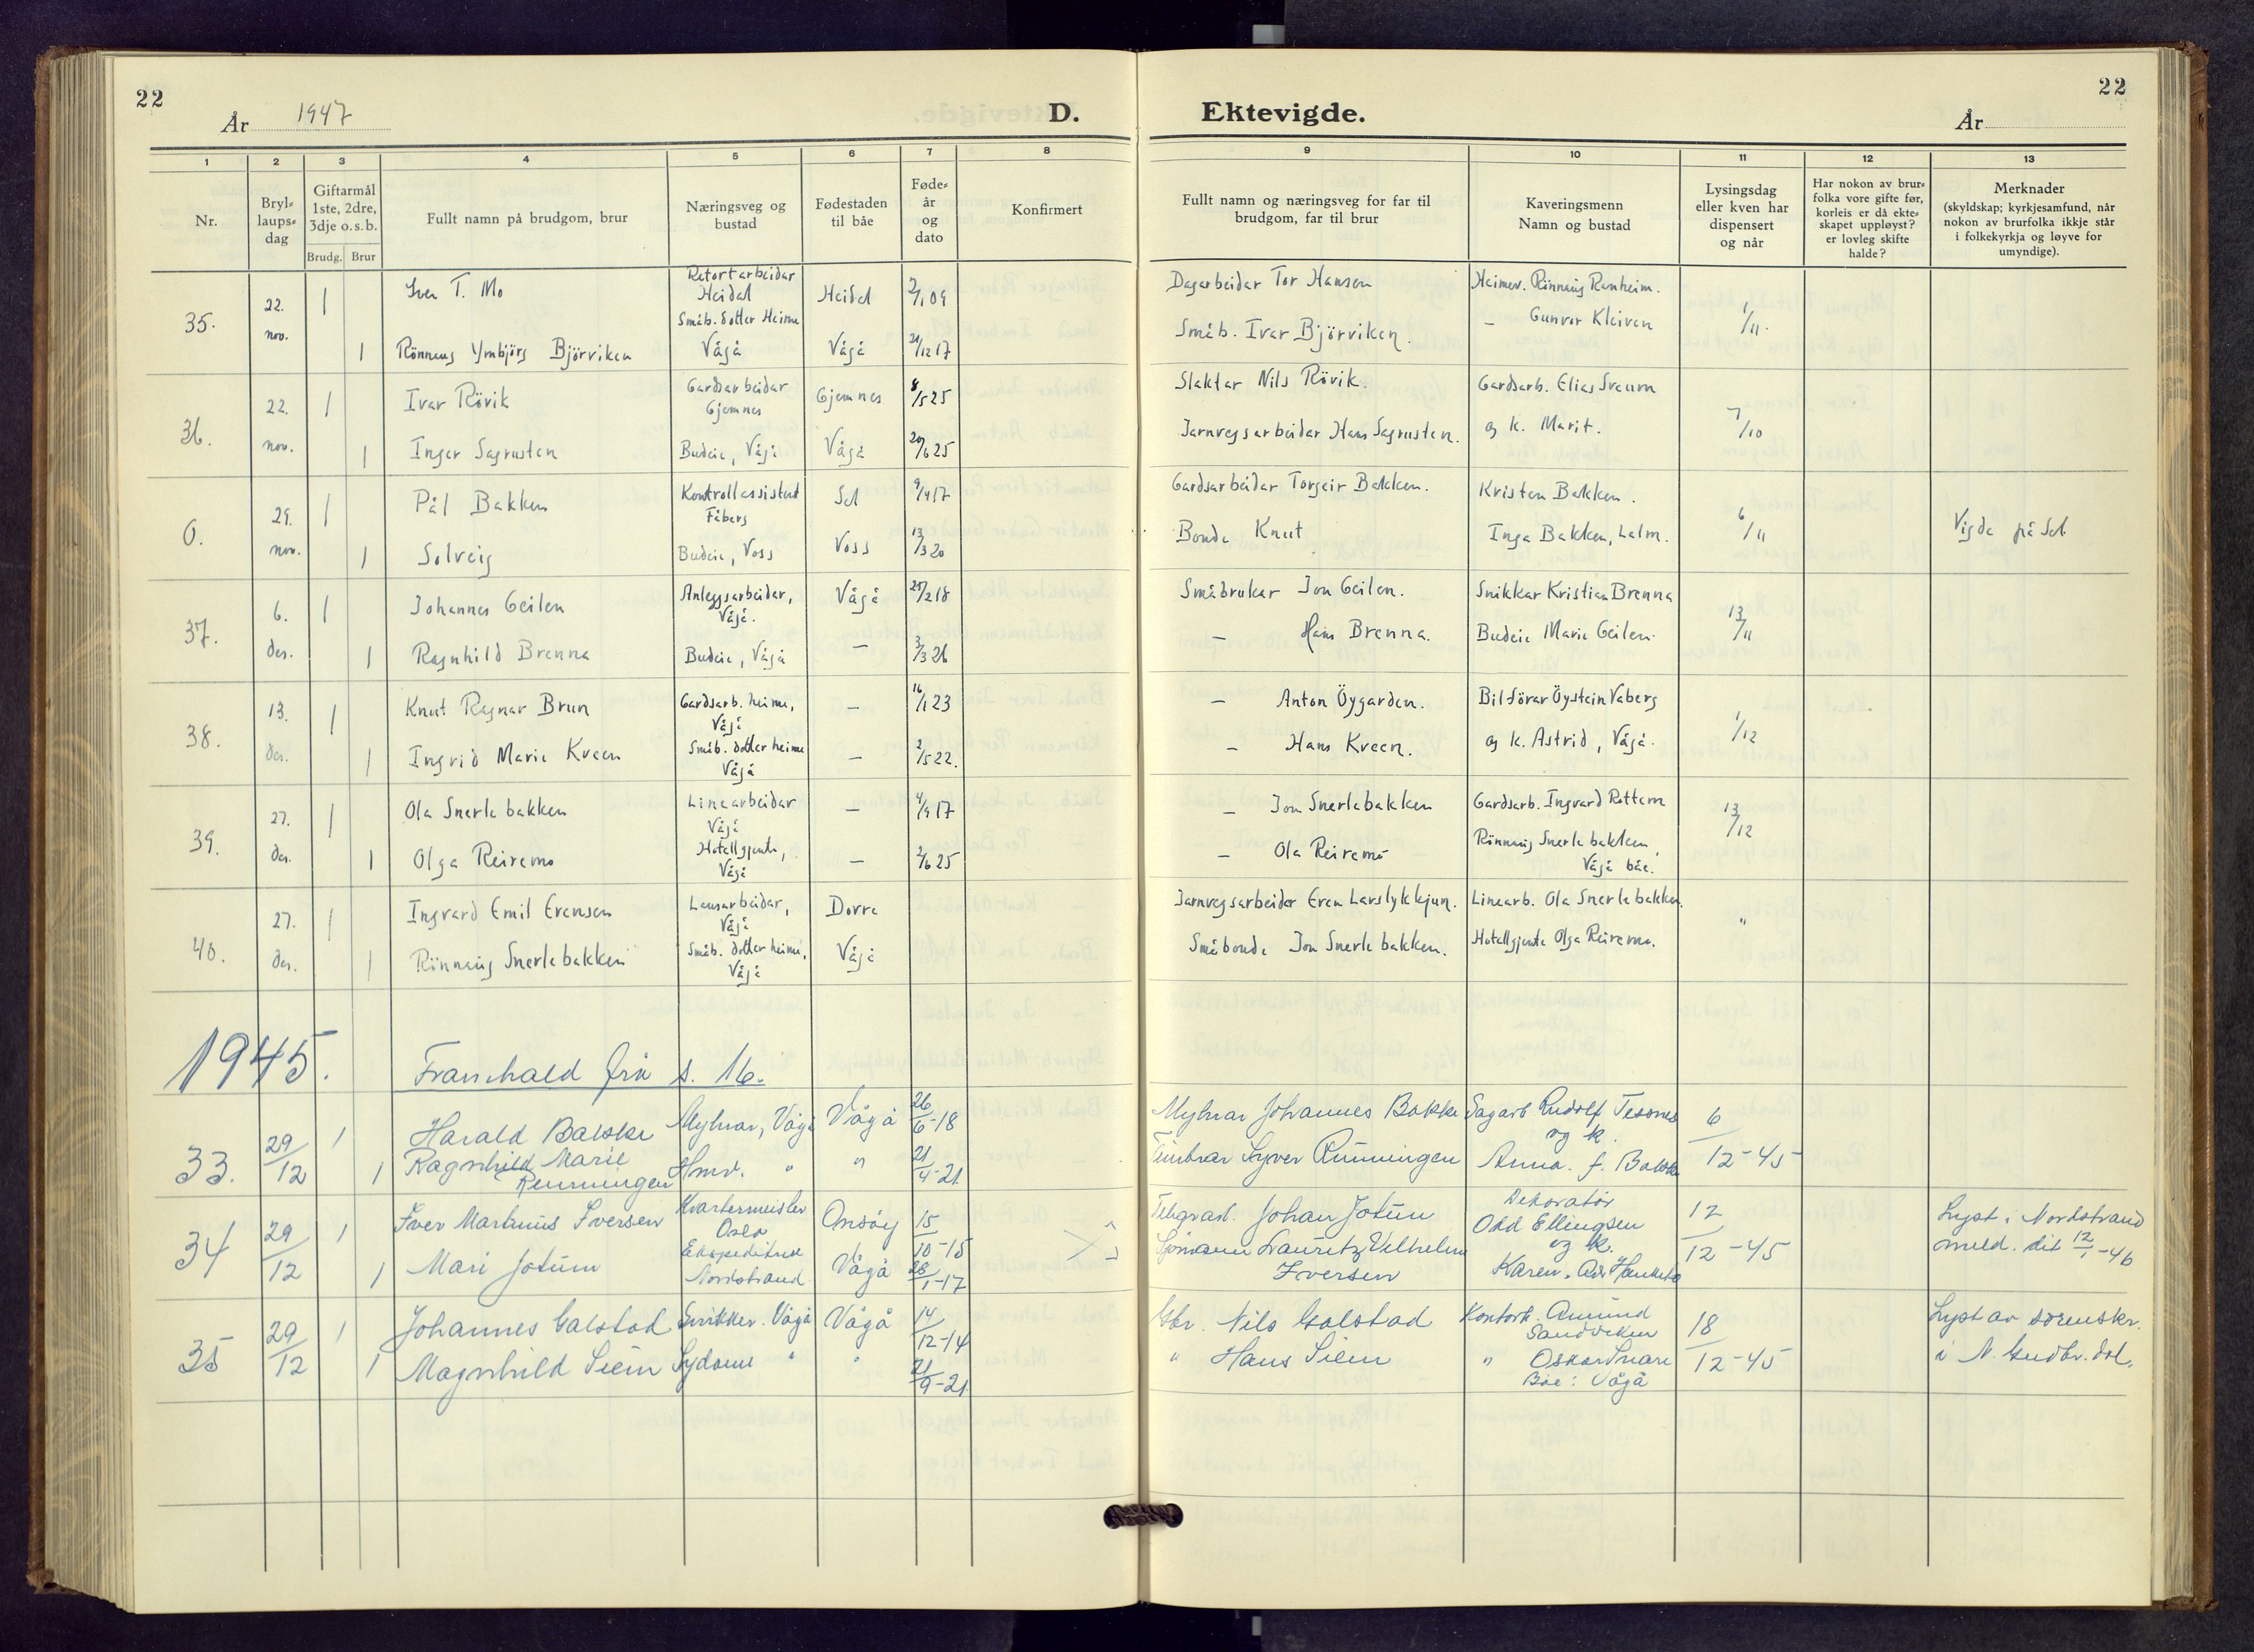 22
År 1947
D.
Ektevigde.
22
År
1 2 3 4 5 6 7 8 9 10 11 12 13
Nr.
Bryl-
laups-
dag
Giftarmål
1ste, 2dre,
3dje o.s.b.
Brudg. Brur
Fullt namn på brudgom, brur
Næringsveg og
bustad
Fødestaden
til båe
Føde-
år
og
dato
Konfirmert
Fullt namn og næringsveg for far til
brudgom, far til brur
Kaveringsmenn
Namn og bustad
Lysingsdag
eller kven har
dispensert
og når
Har nokon av brur-
folka vore gifte før,
korleis er då ekte-
skapet uppløyst?
er lovleg skifte
halde?
Merknader
(skyldskap; kyrkjesamfund, når
nokon av brurfolka ikkje står
i folkekyrkja og løyve for
umyndige).
35. 22. nov.
1 Iver T. Mo Retortarbeidar Heidal Heidal 2/1 09 Dagarbeidar Tor Hansen Heimev. Rönnaug Ranheim. 1/11.
1 Rönnaug Ymbjörg Björviken Småb. dotter Heime Vågå Vågå 21/12 17 Småb. Ivar Björviken. – Gunvor Kleiven
36. 22. nov.
1 Ivar Rövik Gardsarbeidar Gjemnes Gjemnes 8/5 25 Slaktar Nils Rövik. Gardsarb. Elias Sveum 7/10
1 Inger Sagrusten Budeie, Vågå Vågå 20/6 25 Jarnvegsarbeidar Hans Sagrusten. og k. Marit.
0. 29. nov.
1 Pål Bakken Kontrollassistent Fåberg Sel 9/4 17 Gardsarbeidar Torgeir Bakken. Kristen Bakken. 6/11 Vigde på Sel
1 Solveig Budeie, Voss Voss 13/3 20 Bonde Knut Inga Bakken, Lalm.
37. 6. des.
1 Johannes Geilen Anleggsarbeidar, Vågå. Vågå 25/2 18 Småbrukar Jon Geilen. Snikkar Kristian Brenna 13/11
1 Ragnhild Brenna Budeie, Vågå – 3/3 26 – Hans Brenna. Budeie Marie Geilen.
38. 13. des.
1 Knut Ragnar Brun Gardsarb. heime, Vågå – 16/1 23 – Anton Öygarden. Bilförar Öystein Vaberg 1/12
1 Ingrid Marie Kveen Småb. dotter heime Vågå – 2/5 22. – Hans Kveen. og k. Astrid, Vågå.
39. 27. des.
1 Ola Snerlebakken Linearbeidar Vågå – 4/9 17 – Jon Snerlebakken Gardsarb. Ingvard Rottem 13/12
1 Olga Reiremo Hotellgjente, Vågå – 2/6 25 – Ola Reiremo Rönnaug Snerlebakken, Vågå båe.
40. 27. des.
1 Ingvard Emil Evensen Lausarbeidar, Vågå Dovre Jarnvegsarbeidar Even Larslykkjun. Linearb. Ola Snerlebakken. "
1 Rönnaug Snerlebakken Småb. dotter heime, Vågå Vågå Småbonde Jon Snerlebakken. Hotellgjente Olga Reiremo.
1945. Framhald frå s. 16.
33. 29/12
1 Harald Bakke Mylnar, Vågå Vågå 26/6-18 Mylnar Johannes Bakke Sagarb Rudolf Tesnes og k. 6/12-45
1 Ragnhild Marie Runningen Hmv. " " 21/4-21 Syver Runningen Anna. f. Bakke
34 29/12
1 Iver Martinius Iversen Kvartermeister Oslo Onsöy 15/10-15 Telegrafl. Johan Jotun Dekoratör Odd Ellingsen og k. 12/12-45 Lyst i Nordstrand
1 Mari Jotum Nordstrand Vågå 28/1-17 Sjömann Lauritz Vilhelm Iversen Karen. meld. dit 12/1-46
35 29/12
1 Johannes Galstad Snikker. Vågå Vågå 14/12-14 Gbr. Nils Galstad Kontorb. Amund Sandviken 18/12-45 Lyst av sorenskr.
1 Magnhild Siem Sydame " " 21/9-21 " Hans Siem " Oskar Snare Båe: Vågå i N. Gudbr. dal.